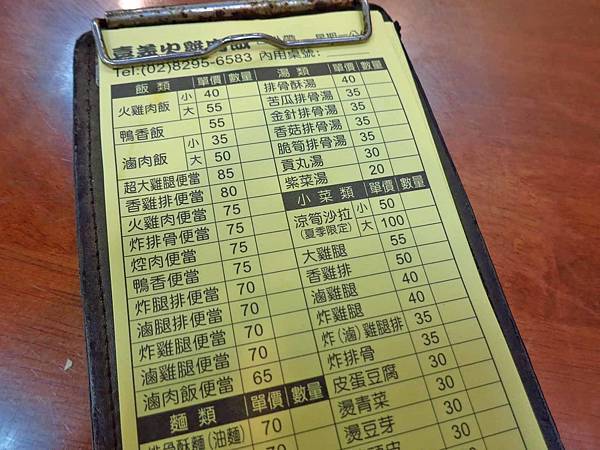 嘉義火雞肉飯
Tel:(02)8295-6583 內用桌號:
飯類 單價 數量
火雞肉飯 小 40
大 55
鴨香飯 55
滷肉飯 小 35
大 50
超大雞腿便當 85
香雞排便當 80
火雞肉便當 75
炸排骨便當 75
焢肉便當 75
鴨香便當 75
炸腿排便當 70
滷腿排便當 70
炸雞腿便當 70
滷雞腿便當 70
滷肉飯便當 65
麵類 單價 數量
排骨酥麵(油麵) 70
湯類
排骨酥湯 40
苦瓜排骨湯 35
金針排骨湯 35
香菇排骨湯 35
脆筍排骨湯 35
貢丸湯 30
紫菜湯 20
小菜類 單價 數量
涼筍沙拉 小 50
(夏季限定) 大 100
大雞腿 55
香雞排 50
滷雞腿 40
炸雞腿 40
炸(滷)雞腿排 35
炸排骨 35
皮蛋豆腐 30
燙青菜 30
燙豆芽 30